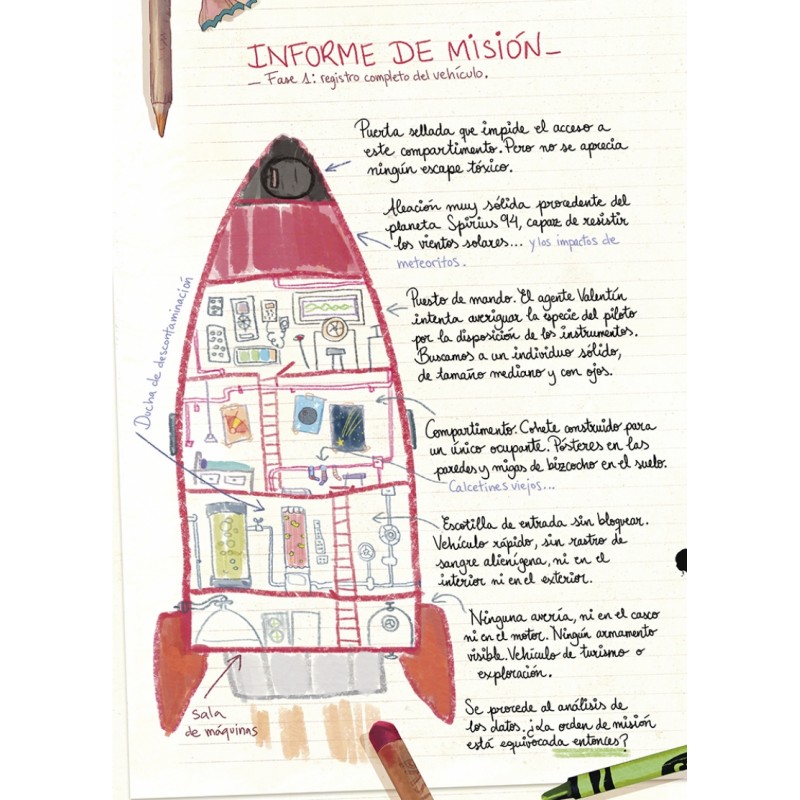 INFORME DE MISIÓN_
_ Fase 1: registro completo del vehículo.
Puerta sellada que impide el acceso a
este compartimento. Pero no se aprecia
ningún escape tóxico.
Aleación muy sólida procedente del
planeta Spirius 94, capaz de resistir
los vientos solares... y los impactos de
meteoritos.
Puesto de mando. El agente Valentín
intenta averiguar la especie del piloto
por la disposición de los instrumentos.
Buscamos a un individuo sólido,
de tamaño mediano y con ojos.
Ducha de descontaminación
Compartimento. Cohete construido para
un único ocupante. Pósteres en las
paredes y migas de bizcocho en el suelo.
Calcetines viejos...
Escotilla de entrada sin bloquear.
Vehículo rápido, sin rastro de
sangre alienígena, ni en el
interior ni en el exterior.
Ninguna avería, ni en el casco
ni en el motor. Ningún armamento
visible. Vehículo de turismo o
exploración.
Sala
de máquinas
Se procede al análisis de
los datos. ¿La orden de misión
está equivocada entonces?